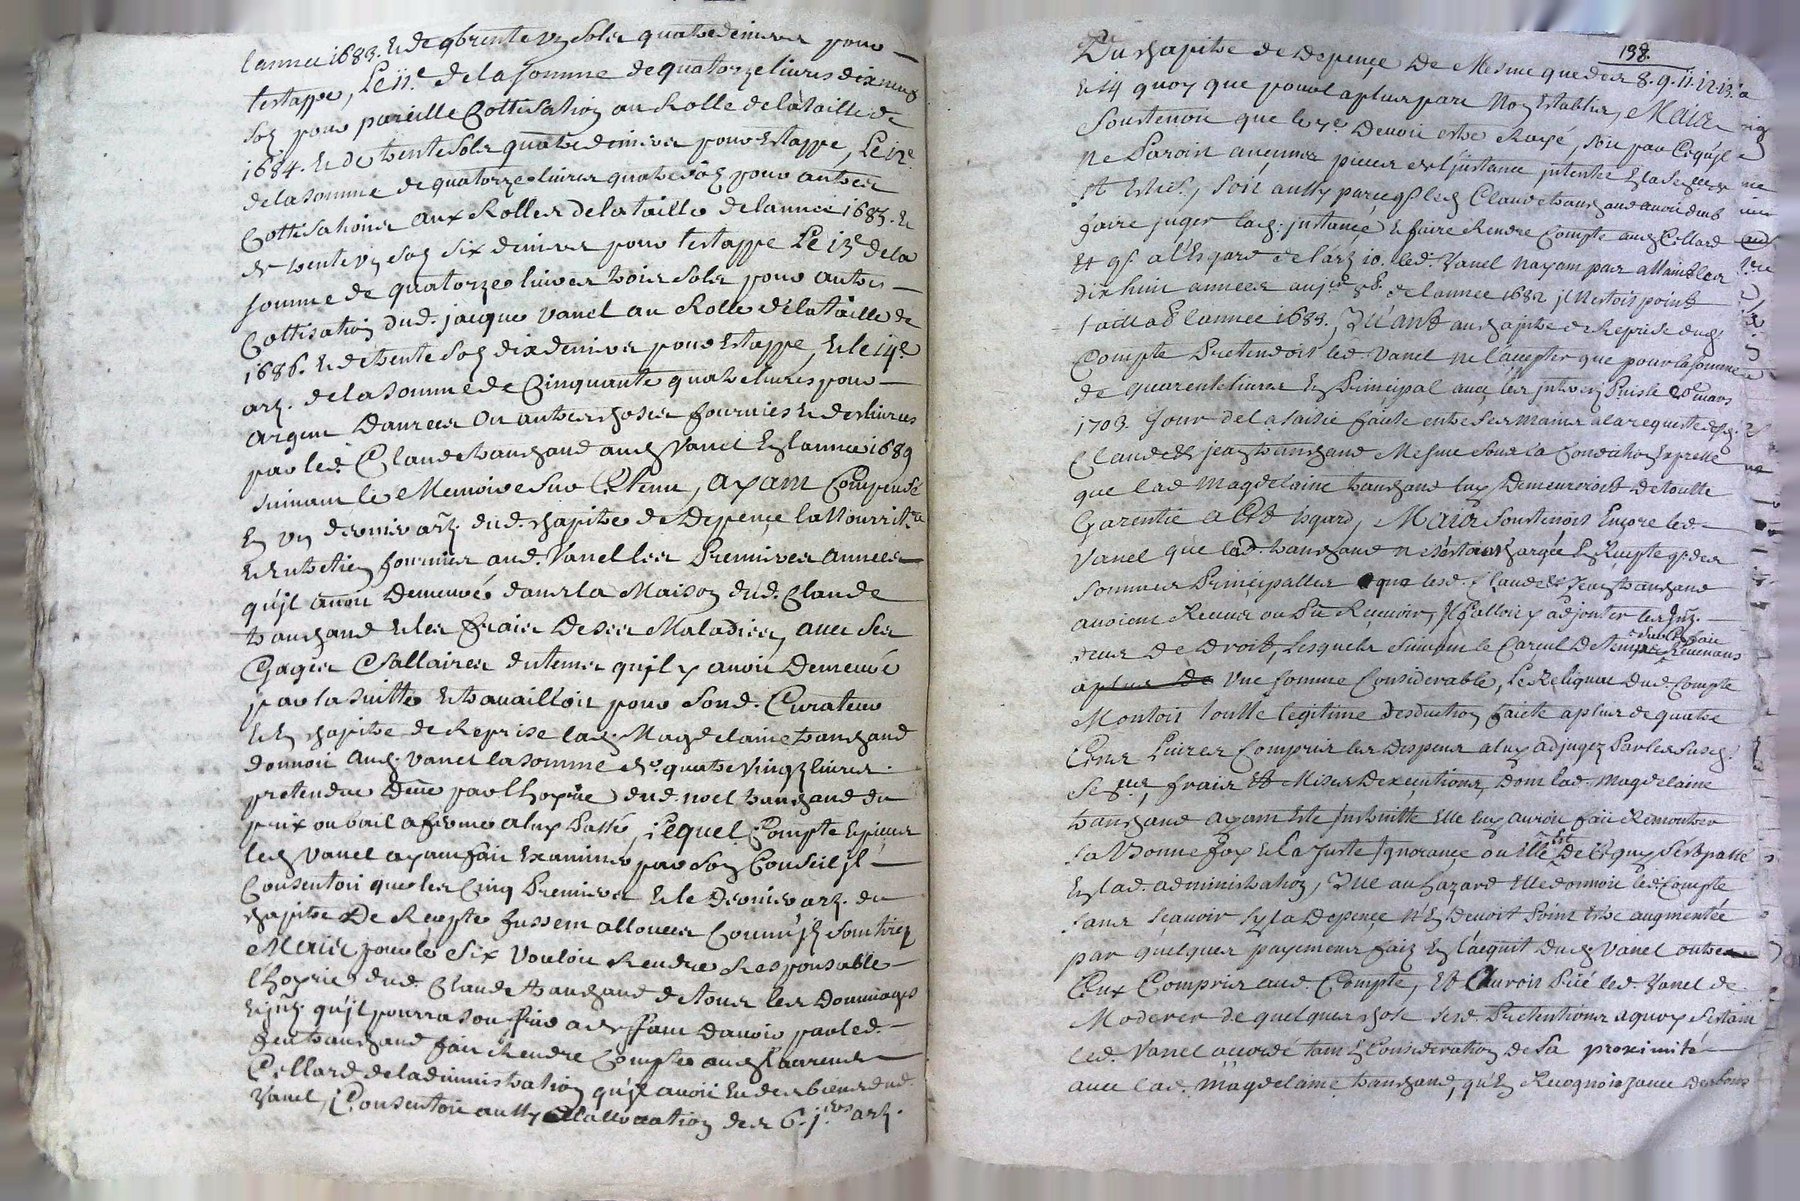 lannee 1683. et de trente un sols quatre deniers pour
lestappe, Le 11e. de la somme de quatorze livres dix neuf
solz pour pareille Cottisation au Rolle de la taille de
1684. et de trente sols quatre deniers pour Estappe, Le 12e
de la somme de quatorze livres quatre solz pour autres
Cottisations aux Rolles de la taille de lannee 1685. et
de trente un solz six deniers pour lestappe Le 13e de la
somme de quatorze livres trois sols pour autre
Cottisation dud. jacque Vanel au Rolle de la taille de
1686. et de trente solz dix deniers pour Estappe, et le 14e
art. de la somme de Cinquante quatre livres pour
argent Danrees ou autres choses fournies et deslivrees
par led. Claude tranchand aud Vanel En lannee 1689
suivant le Memoire sur Ce tenu, ayant Compensé
En un dernier art. dud. chapitre de Depençe la Nourritre
et Entretien fournies aud. Vanel les Premieres annees
qu'jl avoit Demeuré dans la Maison dud. Claude
tranchand et les frais De ses Maladies, avec ses
Gages Sallaires du tems qu'jl y avoit Demeuré
par la suitte et travailloit pour Sond. Curateur
et En chapitre de Reprise lad. Magdelaine tranchand
donnoit aud. Vanel la somme de quatre vingt livres
pretendue Deüe par lhoyrie dud. noel tranchand du
prix du bail a ferme a luy Passé, Lequel Compte et pieces
led Vanel ayant fait Examiner par son Conseil jl
Consentoit que les Cinq Premiers et le Dernier art. du
chapitre De Recepte fussent alloues Comm'jlz sont tirez
Mais pour le Six Vouloit Rendre Responsable
lhoyrie dud. Claude tranchand de tous les Dommages
et jntz qu'jl pourra souffrir a deffaut Davoir par led.
feu tranchand fait Rendre Compte aud Laurens
Cellard de ladministration qu'jl avoit Eu des biens dud.
Vanel, Consentoit aussy a lallocation des 6. j.ers art.
198.
Du chapitre de Depençe De Mesme que des 8. 9. 11. 12. 13.
et 14 quoy que pour la plus part Non Establis, Mais
Soustenoit que le 7e. Devoit estre Rayé, soit par Ce qu'jl
ne Paroit aucunes pieces de l'jnstance jntentée
soit aussy parce q led Claude tranchand avoit deub
faire juger lad. jnstance et faire Rendre Compte aud Cellard
Et q a l'Esgard de l'art 10. led. Vanel nayant pas attaint les
dix huit annees
lannee 1683. Quant au chapitre de Reprise dud.
Compte Pretendoit led. Vanel ne l'accepter que pour la somme
de quarente livres En Principal avec les jnterestz Puis le 20e mars
1703. Jour de la saisie faite entre ses mains a la requeste
Claude et jean tranchand Mesme sous la Condition Expresse
que lad Magdelaine tranchand luy Demeureroit de toutte
Garentie a Cet Esgard, Mais Soustenoit Encore led
Vanel que lad. tranchand ne s'estant chargée En Recepte q des
sommes Principalles que lesd. Claude et Jean tranchand
avoient Receües ou Dû Recevoir, jl falloit y adjouter les jntz.
deus de Droit, lesquels suivant le Careul De temps
sur Ce fait Revenans
a plus de une somme Considerable, Le Reliquat Dud. Compte
Montoit toutte legitime desduction faicte a plus de quatre
Cens Livres Compris les Despens a luy adjugez Par les susd.
Senes, frais Et Mises Dexecutions, Dont lad. Magdelaine
tranchand ayant Esté jnstruitte Elle luy auroit fait Remontrer
sa Bonne foy et la juste jgnorance ou Elle Est De Ce quy s'est passé
En lad. administration, Que au hazard Elle donnoit led. Compte
sans sçavoir sy la Depençe N'En Devoit Point Estre augmentée
par quelques payemens faitz En l'acquit Dud Vanel outre
Ceux Compris aud. Compte, Et Auroit Prié led. Vanel de
Moderer de quelque chose sesd. Pretentions a quoy sestant
led. Vanel accordé tant En Consideration de La proximité
avec lad. Magdelaine tranchand, qu'En Recognoissance des bons